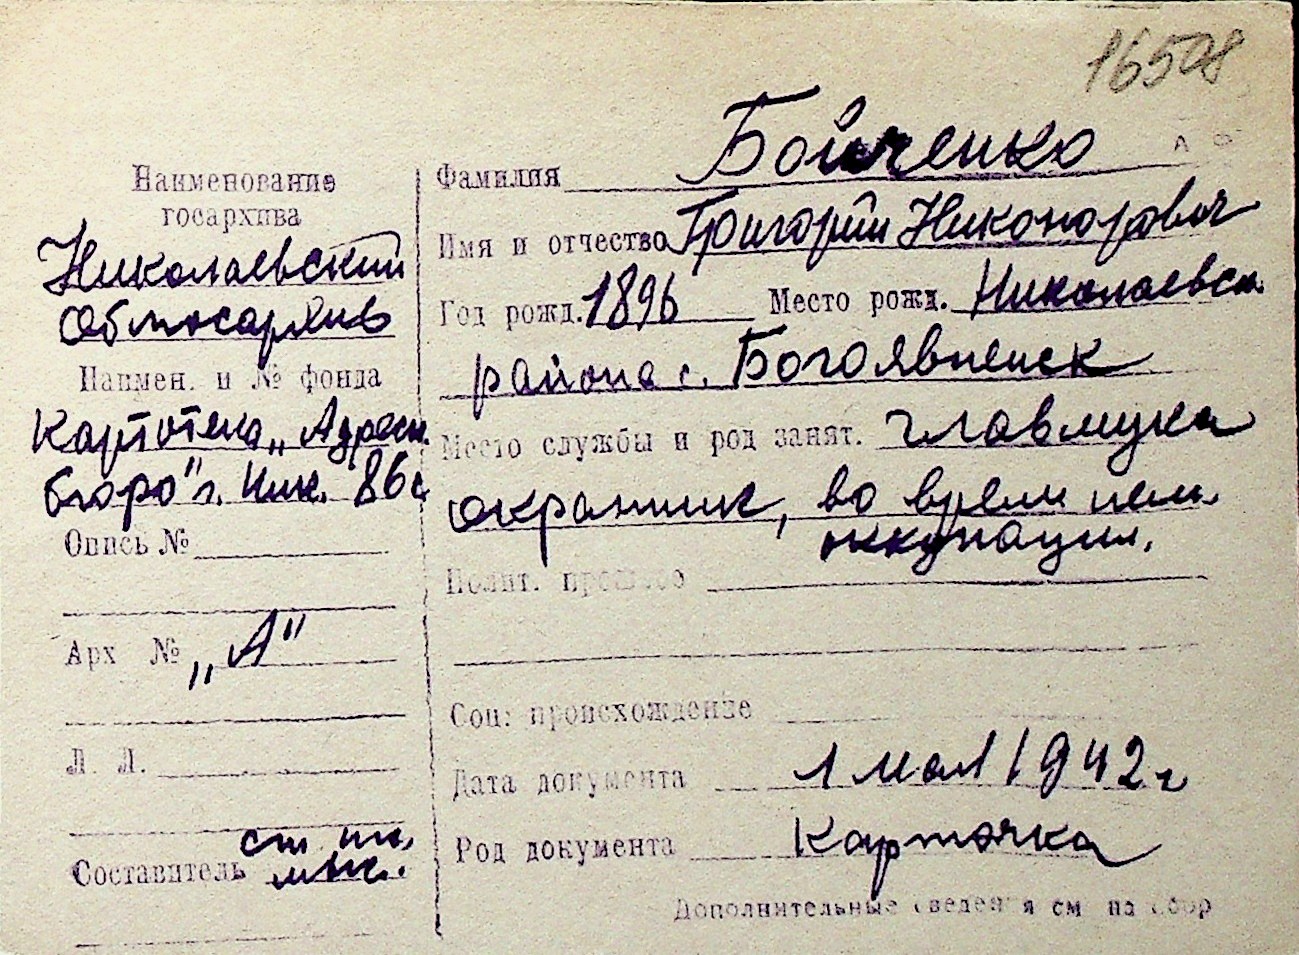 16508
Наименование
госархива
Николаевский
Облгосархив
Наимен. и № фонда
Картотека „Адресн.
бюро" г. Ник. 86с
Опись №
Арх №
„А"
Л. Л.
Составитель
Фамилия Бойченко
Имя и отчество Григорий Никонорович
Год рожд. 1896 Место рожд. Николаевск.
района с. Богоявленск
Место службы и род занят. главмука
охранник, во время нем.
оккупации.
Полит. прошлое
Соц: происхождение
Дата документа 1 мая 1942 г
Род документа Карточка
Дополнительные сведения см на обор